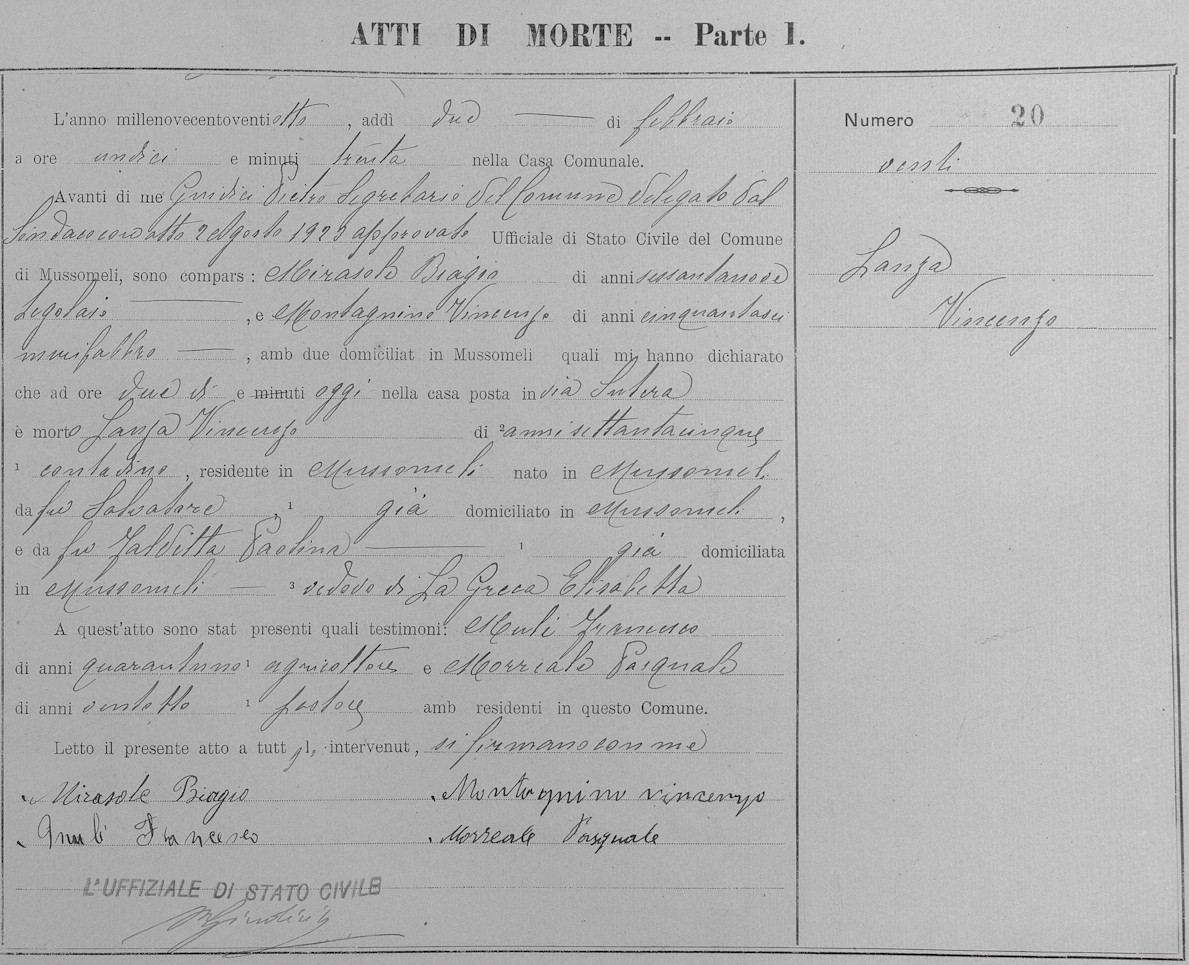 ATTI DI MORTE -- Parte 1.
L'anno millenovecentoventiotto, addì due di febbraio
a ore undici e minuti trenta nella Casa Comunale.
Avanti di me Giudici Pietro Segretario del Comune delegato dal
Sindaco con atto 2 Agosto 1923 approvato Ufficiale di Stato Civile del Comune
di Mussomeli, sono compars : Mirasole Biagio di anni sessantanove
Segolaio , e Montagnino Vincenzo di anni cinquantasei
murifabbro , amb due domiciliat in Mussomeli quali mi hanno dichiarato
che ad ore due di e minuti oggi nella casa posta in via Sutera
è morto Lanza Vincenzo di ² anni settantacinque
¹ contadino , residente in Mussomeli nato in Mussomeli
da fu Salvatore , ¹ già domiciliato in Mussomeli ,
e da fu Paolina ¹ già domiciliata
in Mussomeli ³ vedovo di La Greca Elisabetta
A quest'atto sono stat presenti quali testimoni: Mulè Francesco
di anni quarantuno ¹ agricoltore e Morreale Pasquale
di anni ventotto ¹ pastore amb residenti in questo Comune.
Letto il presente atto a tutt gl' intervenut, si firmano con me
Mirasole Biagio Montagnino vincenzo
Mulè Francesco Morreale Pasquale
L'UFFIZIALE DI STATO CIVILE
PGiudici
Numero 20
venti
Lanza
Vincenzo